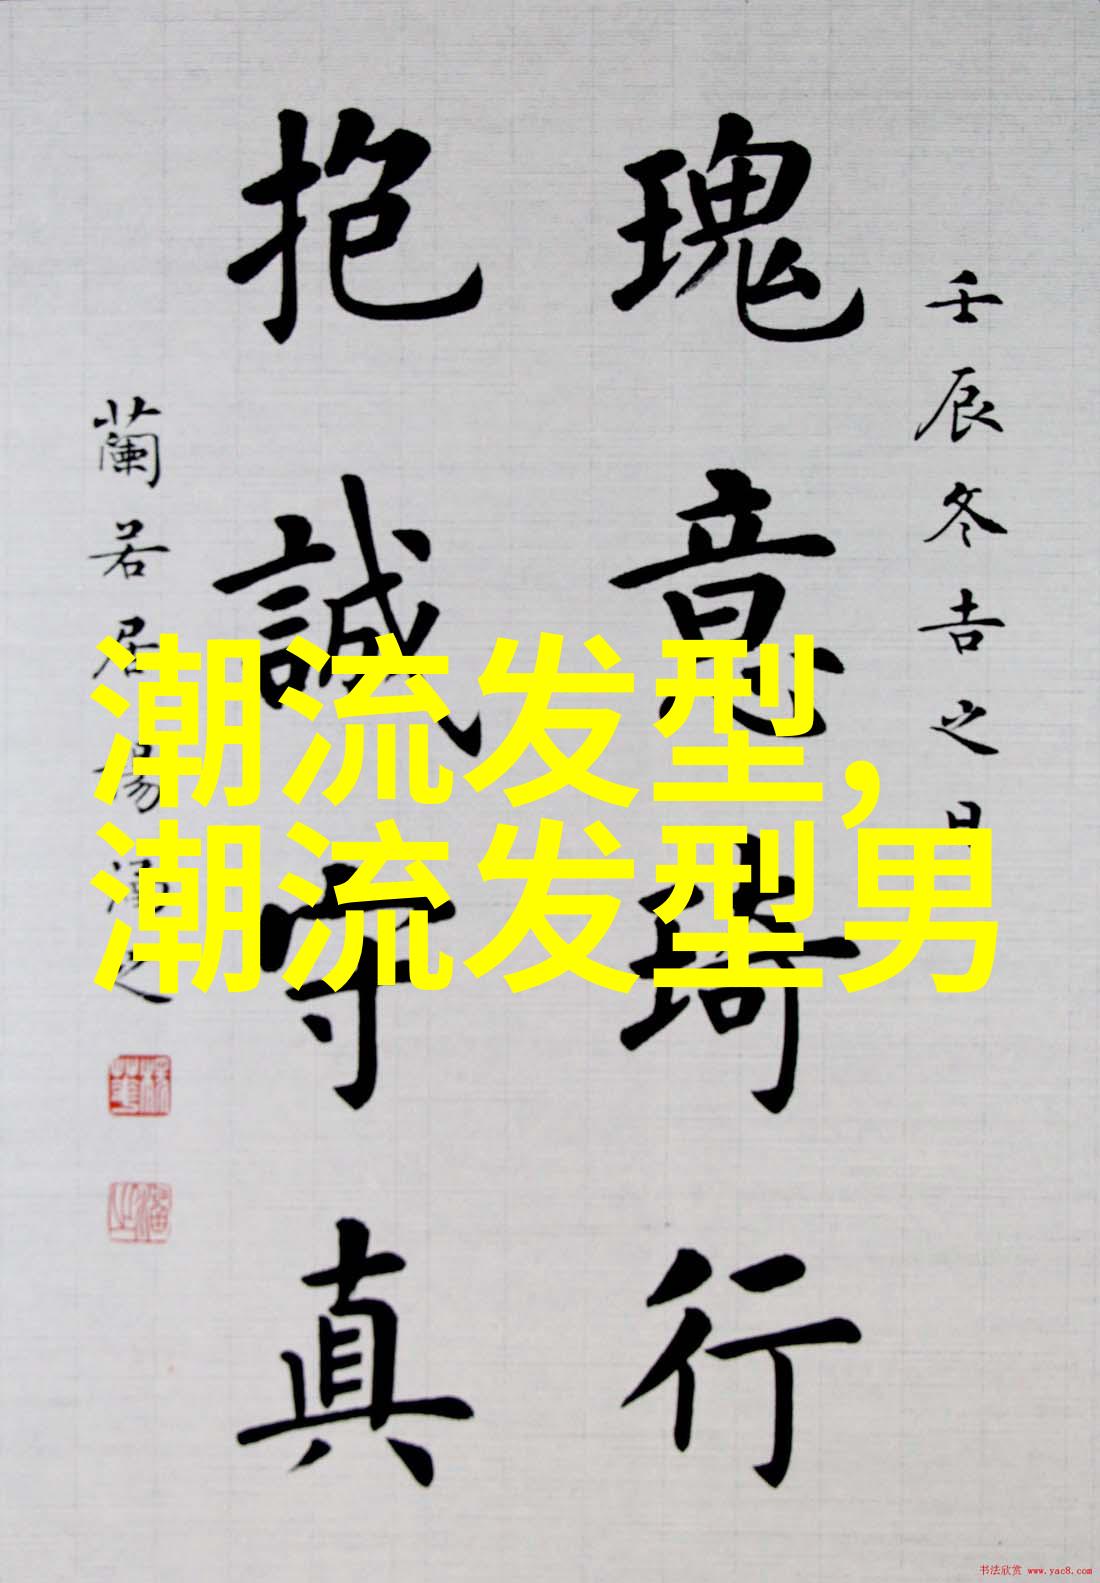 壬辰冬吉之日
瑰意琦行
抱誠守真
蘭若居楊潘之
潮流发型，
潮流发型男
书法欣赏 www.yac8.com